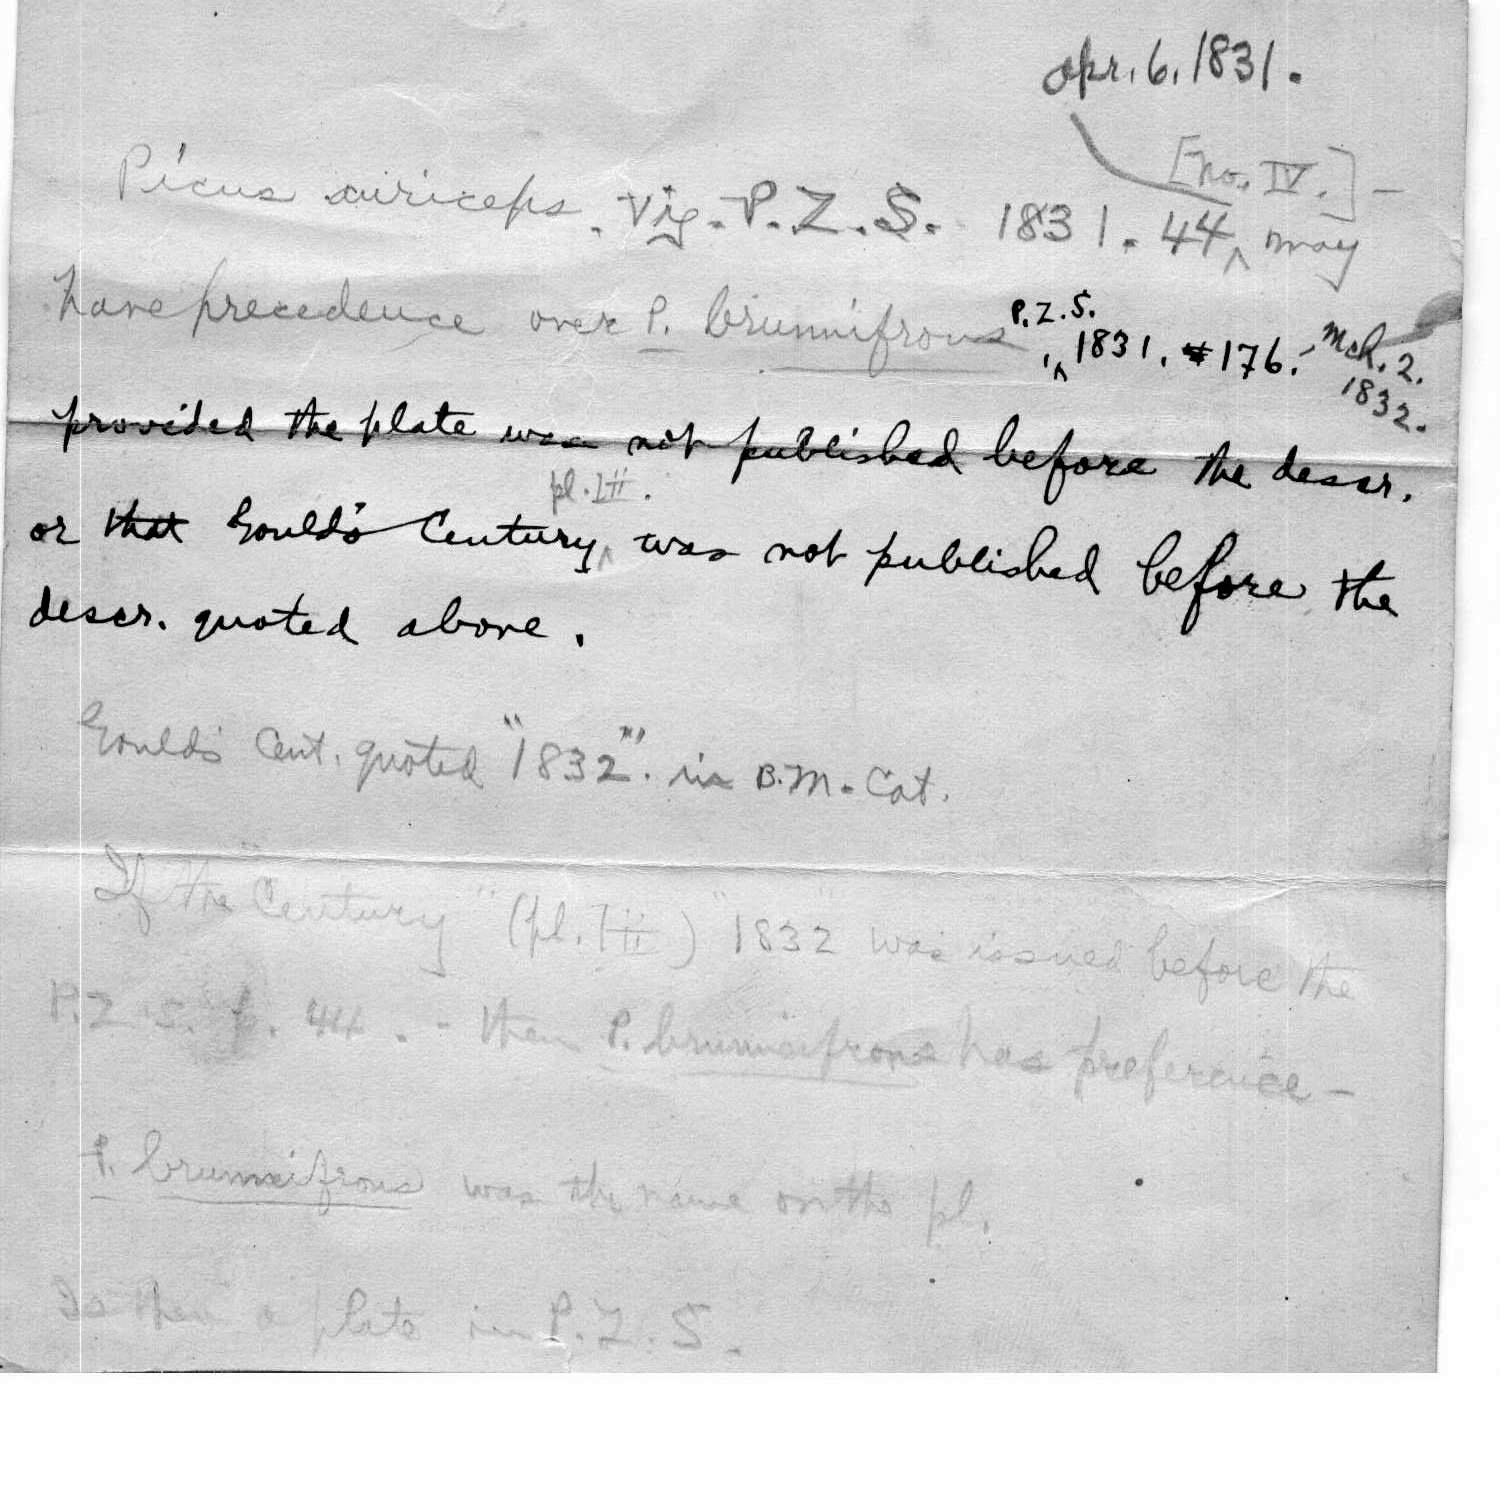 Apr. 6. 1831.
[No. IV.] -
Picus auriceps. Vig. P.Z.S. 1831. 44 ^ may
have precedence over P. brunnifrons
P.Z.S.
, ^ 1831. 176. - Mch. 2.
1832.
provided the plate was not published before the descr.
pl. lii.
or that Gould's Century ^ was not published before the
descr. quoted above.
Gould's Cent. quoted "1832". in B.M. Cat.
If the "Century" (pl. lii) "1832" was issued before the
P.Z.S. p. 44. - then P. brunnifrons has preference -
P. brunnifrons was the name on the pl.
Is there a plate in P.Z.S.